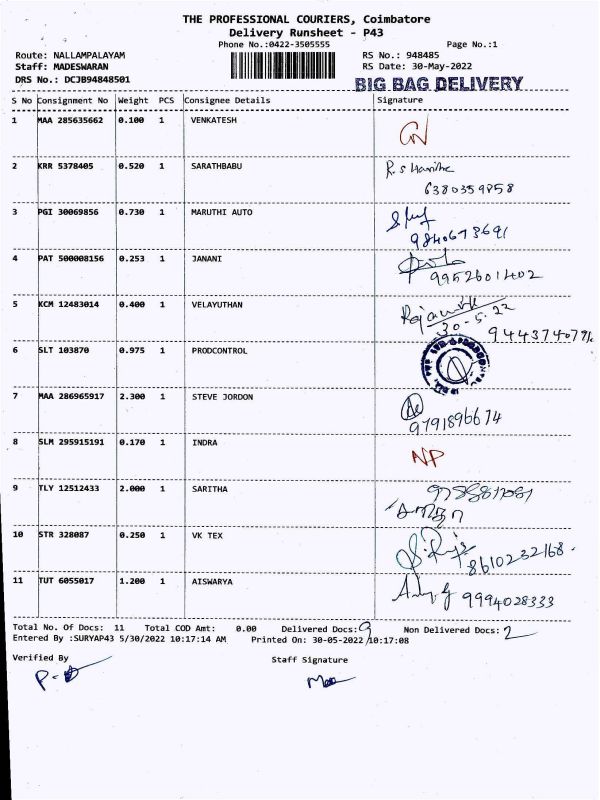 THE PROFESSIONAL COURIERS, Coimbatore
Delivery Runsheet - P43
Phone No.:0422-3505555
Page No.:1
Route: NALLAMPALAYAM
RS No.: 948485
Staff: MADESWARAN
RS Date: 30-May-2022
DRS No.: DCJB94848501
BIG BAG DELIVERY
S No Consignment No Weight PCS Consignee Details Signature
1 MAA 285635662 0.100 1 VENKATESH
2 KRR 5378405 0.520 1 SARATHBABU R.S
6380359858
3 PGI 30069856 0.730 1 MARUTHI AUTO
9840673691
4 PAT 500008156 0.253 1 JANANI
9952601402
5 KCM 12483014 0.400 1 VELAYUTHAN
30-5-22
6 SLT 103870 0.975 1 PRODCONTROL
7 MAA 286965917 2.300 1 STEVE JORDON
9791896674
8 SLM 295915191 0.170 1 INDRA NP
9 TLY 12512433 2.000 1 SARITHA
10 STR 328087 0.250 1 VK TEX
8610232168
11 TUT 6055017 1.200 1 AISWARYA
9994028333
Total No. Of Docs: 11 Total COD Amt: 0.00 Delivered Docs: 9 Non Delivered Docs: 2
Entered By :SURYAP43 5/30/2022 10:17:14 AM Printed On: 30-05-2022 10:17:08
Verified By
Staff Signature